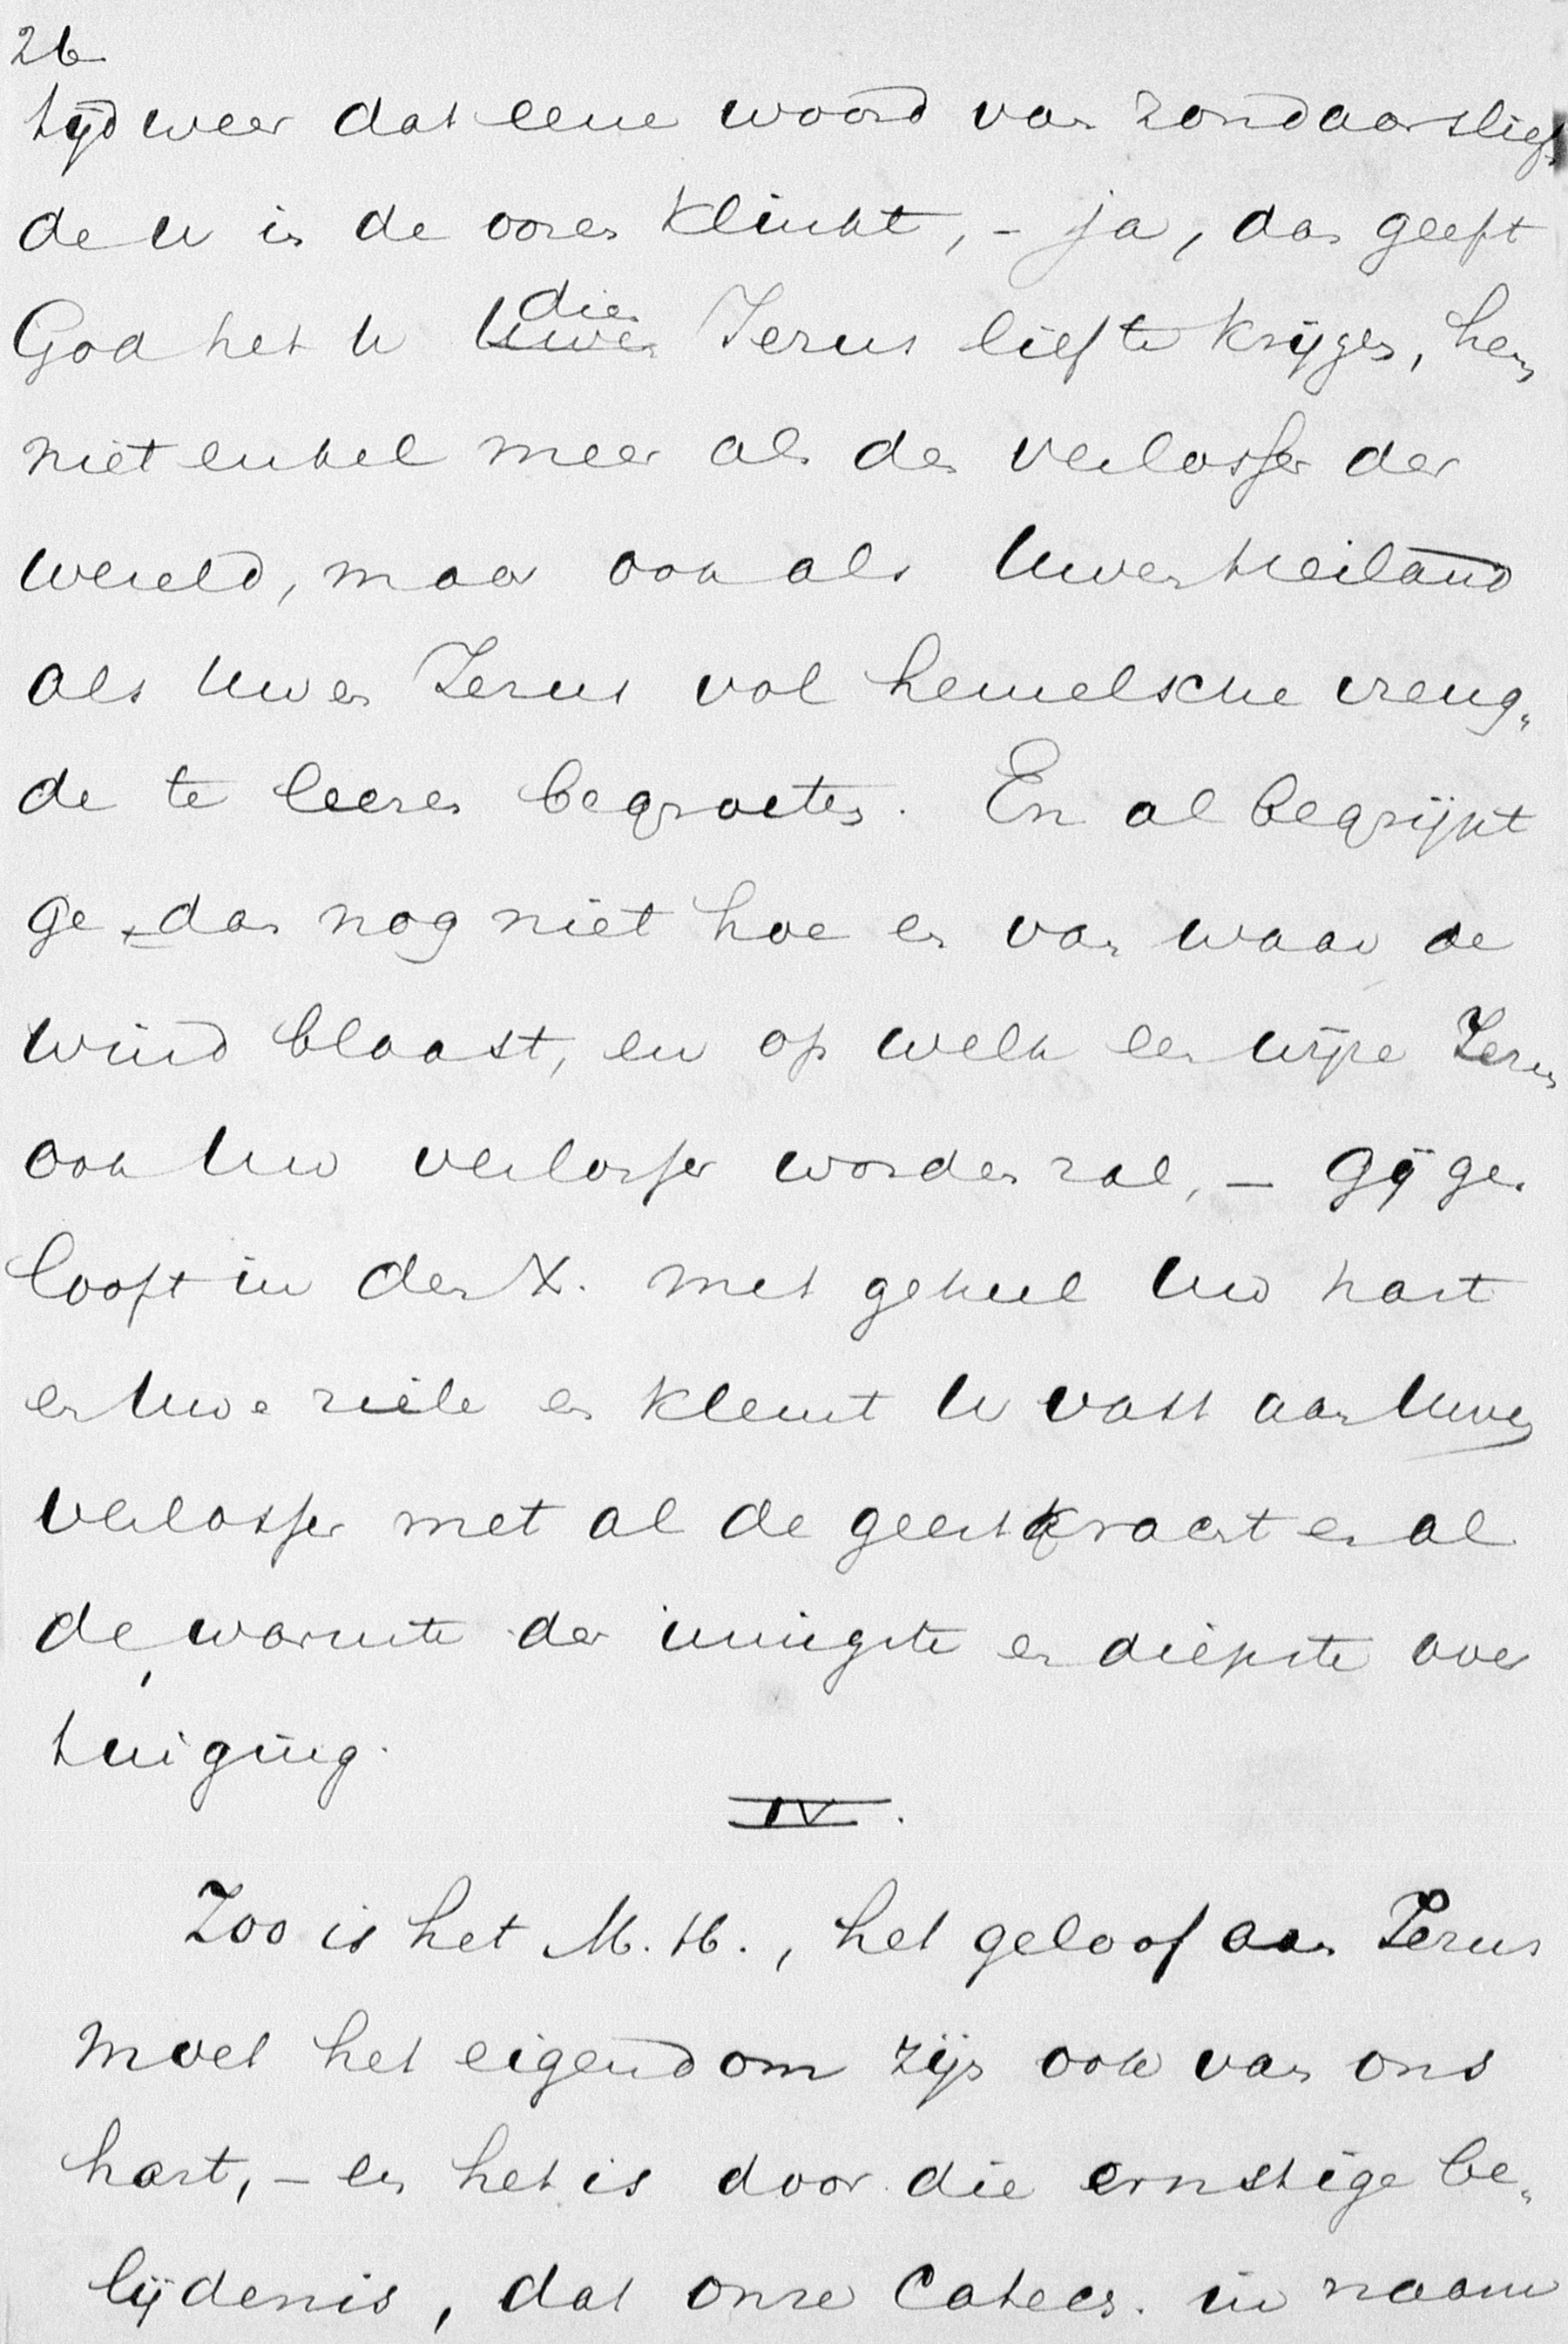 26
tijd weer dat eene woord van zondaarslief„
de U in de ooren klinkt, – ja, dan geeft
die
God het U Uwen Jezus lief te krijgen, hem
niet enkel meer als den verlosser der
wereld, maar ook als Uwen heiland
als Uwen Jezus vol hemelsche vreug„
de te leeren begroeten. En al begrijpt
ge dan nog niet hoe en van waar de
wind blaast, en op welk een wijze Jezus
ook Uw verlosser worden zal, – gij ge„
looft in den X. met geheel Uw hart
en Uwe ziele en klemt U vast aan Uwen
verlosser met al de geestkracht en al
de warmte der innigste en diepste over
tuiging.
IV.
Zoo is het M. H., het geloof aan Jezus
moet het eigendom zijn ook van ons
hart, – en het is door die ernstige be„
lijdenis, dat onze Catech. in naam